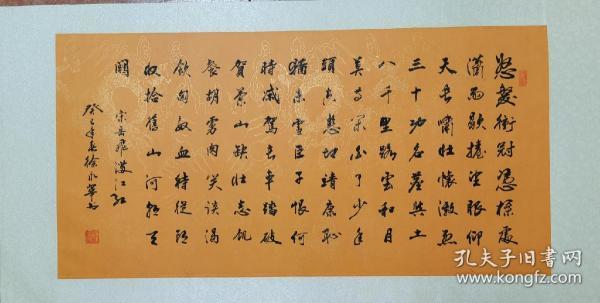 怒髮衝冠憑欄處
瀟雨歇擡望眼仰
天長嘯壯懷激烈
三十功名塵與土
八千里路雲和月
莫等閑白了少年
頭空悲切靖康恥
猶未雪臣子恨何
時滅駕長車踏破
賀蘭山缺壯志飢
餐胡虜肉笑談渴
飲匈奴血待從頭
收拾舊山河朝天
闕
宋岳飛滿江紅
癸巳年春徐永華書
孔夫子旧书网
www.kongfz.com